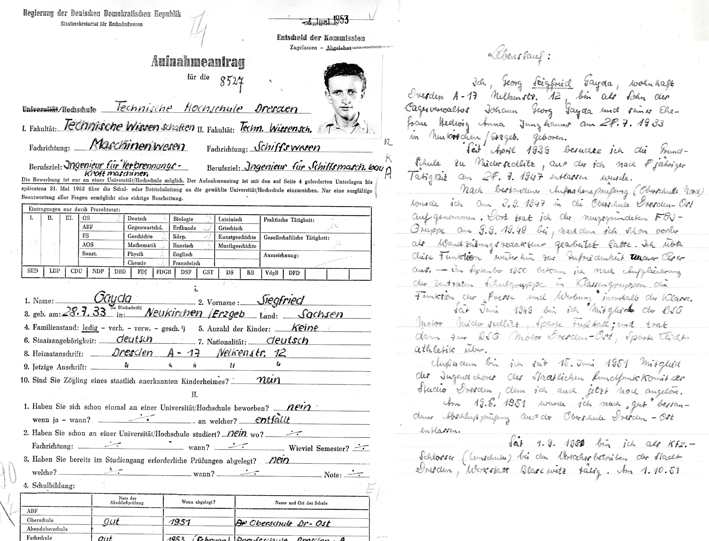 Regierung der Deutschen Demokratischen Republik
Staatssekretariat für Hochschulwesen
Juni 1953
Entscheid der Kommission
Zugelassen – Abgelehnt
Aufnahmeantrag
für die 8527
Universität/Hochschule Technische Hochschule Dresden
I. Fakultät: Technische Wissenschaften II. Fakultät: Techn. Wissensch.
Fachrichtung: Maschinenwesen Fachrichtung: Schiffswesen
Berufsziel: Ingenieur für Verbrennungs- Berufsziel: Ingenieur für Schiffsmaschbau
kraftmaschinen
Die Bewerbung ist nur an einer Universität/Hochschule möglich. Der Aufnahmeantrag ist mit den auf Seite 4 geforderten Unterlagen bis
spätestens 31. Mai 1953 über die Schul- oder Betriebsleitung an die gewählte Universität/Hochschule einzureichen. Nur eine sorgfältige
Beantwortung aller Fragen ermöglicht eine richtige Bearbeitung.
Eintragungen nur durch Prorektorat:
I. II. III. OS Deutsch Biologie Lateinisch Praktische Tätigkeit:
ABF Gegenwartskd. Erdkunde Griechisch
FS Geschichte Körp. Kunstgeschichte Gesellschaftliche Tätigkeit:
AOS Mathematik Russisch Musikgeschichte
Sonst. Physik Englisch Auszeichnung:
Chemie Französisch
SED LDP CDU NDP DBD FDJ FDGB DSF GST DS KB VdgB DFD
I.
1. Name: Gayda 2. Vorname: Siegfried
3. geb. am: 28.7.33 in: Neukirchen/Erzgeb Land: Sachsen
4. Familienstand: ledig – verh. – verw. – gesch. 5. Anzahl der Kinder: keine
6. Staatsangehörigkeit: deutsch 7. Nationalität: deutsch
8. Heimatanschrift: Dresden A-17 Nelkenstr. 12
9. Jetzige Anschrift: " " " "
10. Sind Sie Zögling eines staatlich anerkannten Kinderheimes? nein
II.
1. Haben Sie sich schon einmal an einer Universität/Hochschule beworben? nein
wenn ja – wann? an welcher? entfällt
2. Haben Sie schon an einer Universität/Hochschule studiert? nein wo?
Fachrichtung: wann? Wieviel Semester?
3. Haben Sie bereits im Studiengang erforderliche Prüfungen abgelegt? nein
welche? wann? Note:
4. Schulbildung:
Note der Abschlußprüfung Wann abgelegt? Name und Ort der Schule
ABF
Oberschule gut 1951 Oberschule Dr-Ost
Abendoberschule
Fachschule gut 1953 (Februar) Dresden-A
Lebenslauf:
Ich, Georg Siegfried Gayda, wohnhaft
Dresden A-17 Nelkenstr. 12, bin als Sohn des
Johann Georg Gayda und seiner Ehe-
frau Hedwig Anna Junghanns am 28.7.1933
in Neukirchen/Erzgeb. geboren.
Seit April 1939 besuchte ich die Grund-
schule zu Niedersedlitz, aus der ich nach 8 jähriger
Tätigkeit am 28.7.1947 entlassen wurde.
Nach bestandener Aufnahmeprüfung (Oberschule Nord)
wurde ich am 2.9.1947 in die Oberschule Dresden-Ost
aufgenommen. Dort trat ich der neugegründeten FDJ-
Gruppe am 9.9.1948 bei, nachdem ich schon vorher
als Wandzeitungsredakteur gearbeitet hatte. Ich übte
diese Funktion weiterhin zur Zufriedenheit unserer Leser
aus. – Im September 1950 bekam ich nach Aufgliederung
der zentralen Schulgruppe in Klassengruppen die
Funktion der "Presse und Werbung" innerhalb der Klasse.
Seit Juni 1949 bin ich Mitglied der BSG
Motor Niedersedlitz, Sparte Fußball, und trat
dann zur BSG Motor Dresden-Ost, Sparte Leicht-
athletik über.
Außerdem bin ich seit 15. Juni 1951 Mitglied
des Jugendchores des Staatlichen Rundfunkkomitees
Studio Dresden, dem ich auch jetzt noch angehöre.
Am 19.6.1951 wurde ich nach "gut" bestan-
dener Abschlußprüfung aus der Oberschule Dresden-Ost
entlassen.
Seit 1.9.1951 bin ich als Kfz.-
Schlosser (Umschüler) bei den Verkehrsbetrieben der Stadt
Dresden, Werkstatt Blasewitz tätig. Am 1.10.51